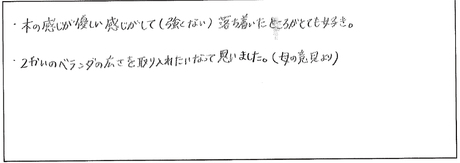 ・木の感じが優しい感じがして(強くない)落ち着いたところがとても好き。
・2かいのベランダの広さを取り入れたいなって思いました。(母の意見より)